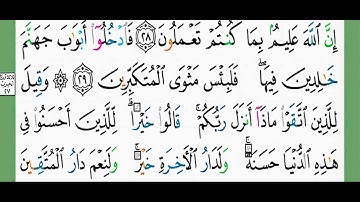 إِنَّ ٱللَّهَ عَلِيمٌۢ بِمَا كُنتُمْ تَعْمَلُونَ ٢٨ فَٱدْخُلُوٓا۟ أَبْوَٰبَ جَهَنَّمَ
خَٰلِدِينَ فِيهَا ۖ فَلَبِئْسَ مَثْوَى ٱلْمُتَكَبِّرِينَ ٢٩ ۞ وَقِيلَ
لِلَّذِينَ ٱتَّقَوْا۟ مَاذَآ أَنزَلَ رَبُّكُمْ ۚ قَالُوا۟ خَيْرًا ۗ لِّلَّذِينَ أَحْسَنُوا۟ فِى
هَٰذِهِ ٱلدُّنْيَا حَسَنَةٌ ۚ وَلَدَارُ ٱلْـَٔاخِرَةِ خَيْرٌ ۚ وَلَنِعْمَ دَارُ ٱلْمُتَّقِينَ